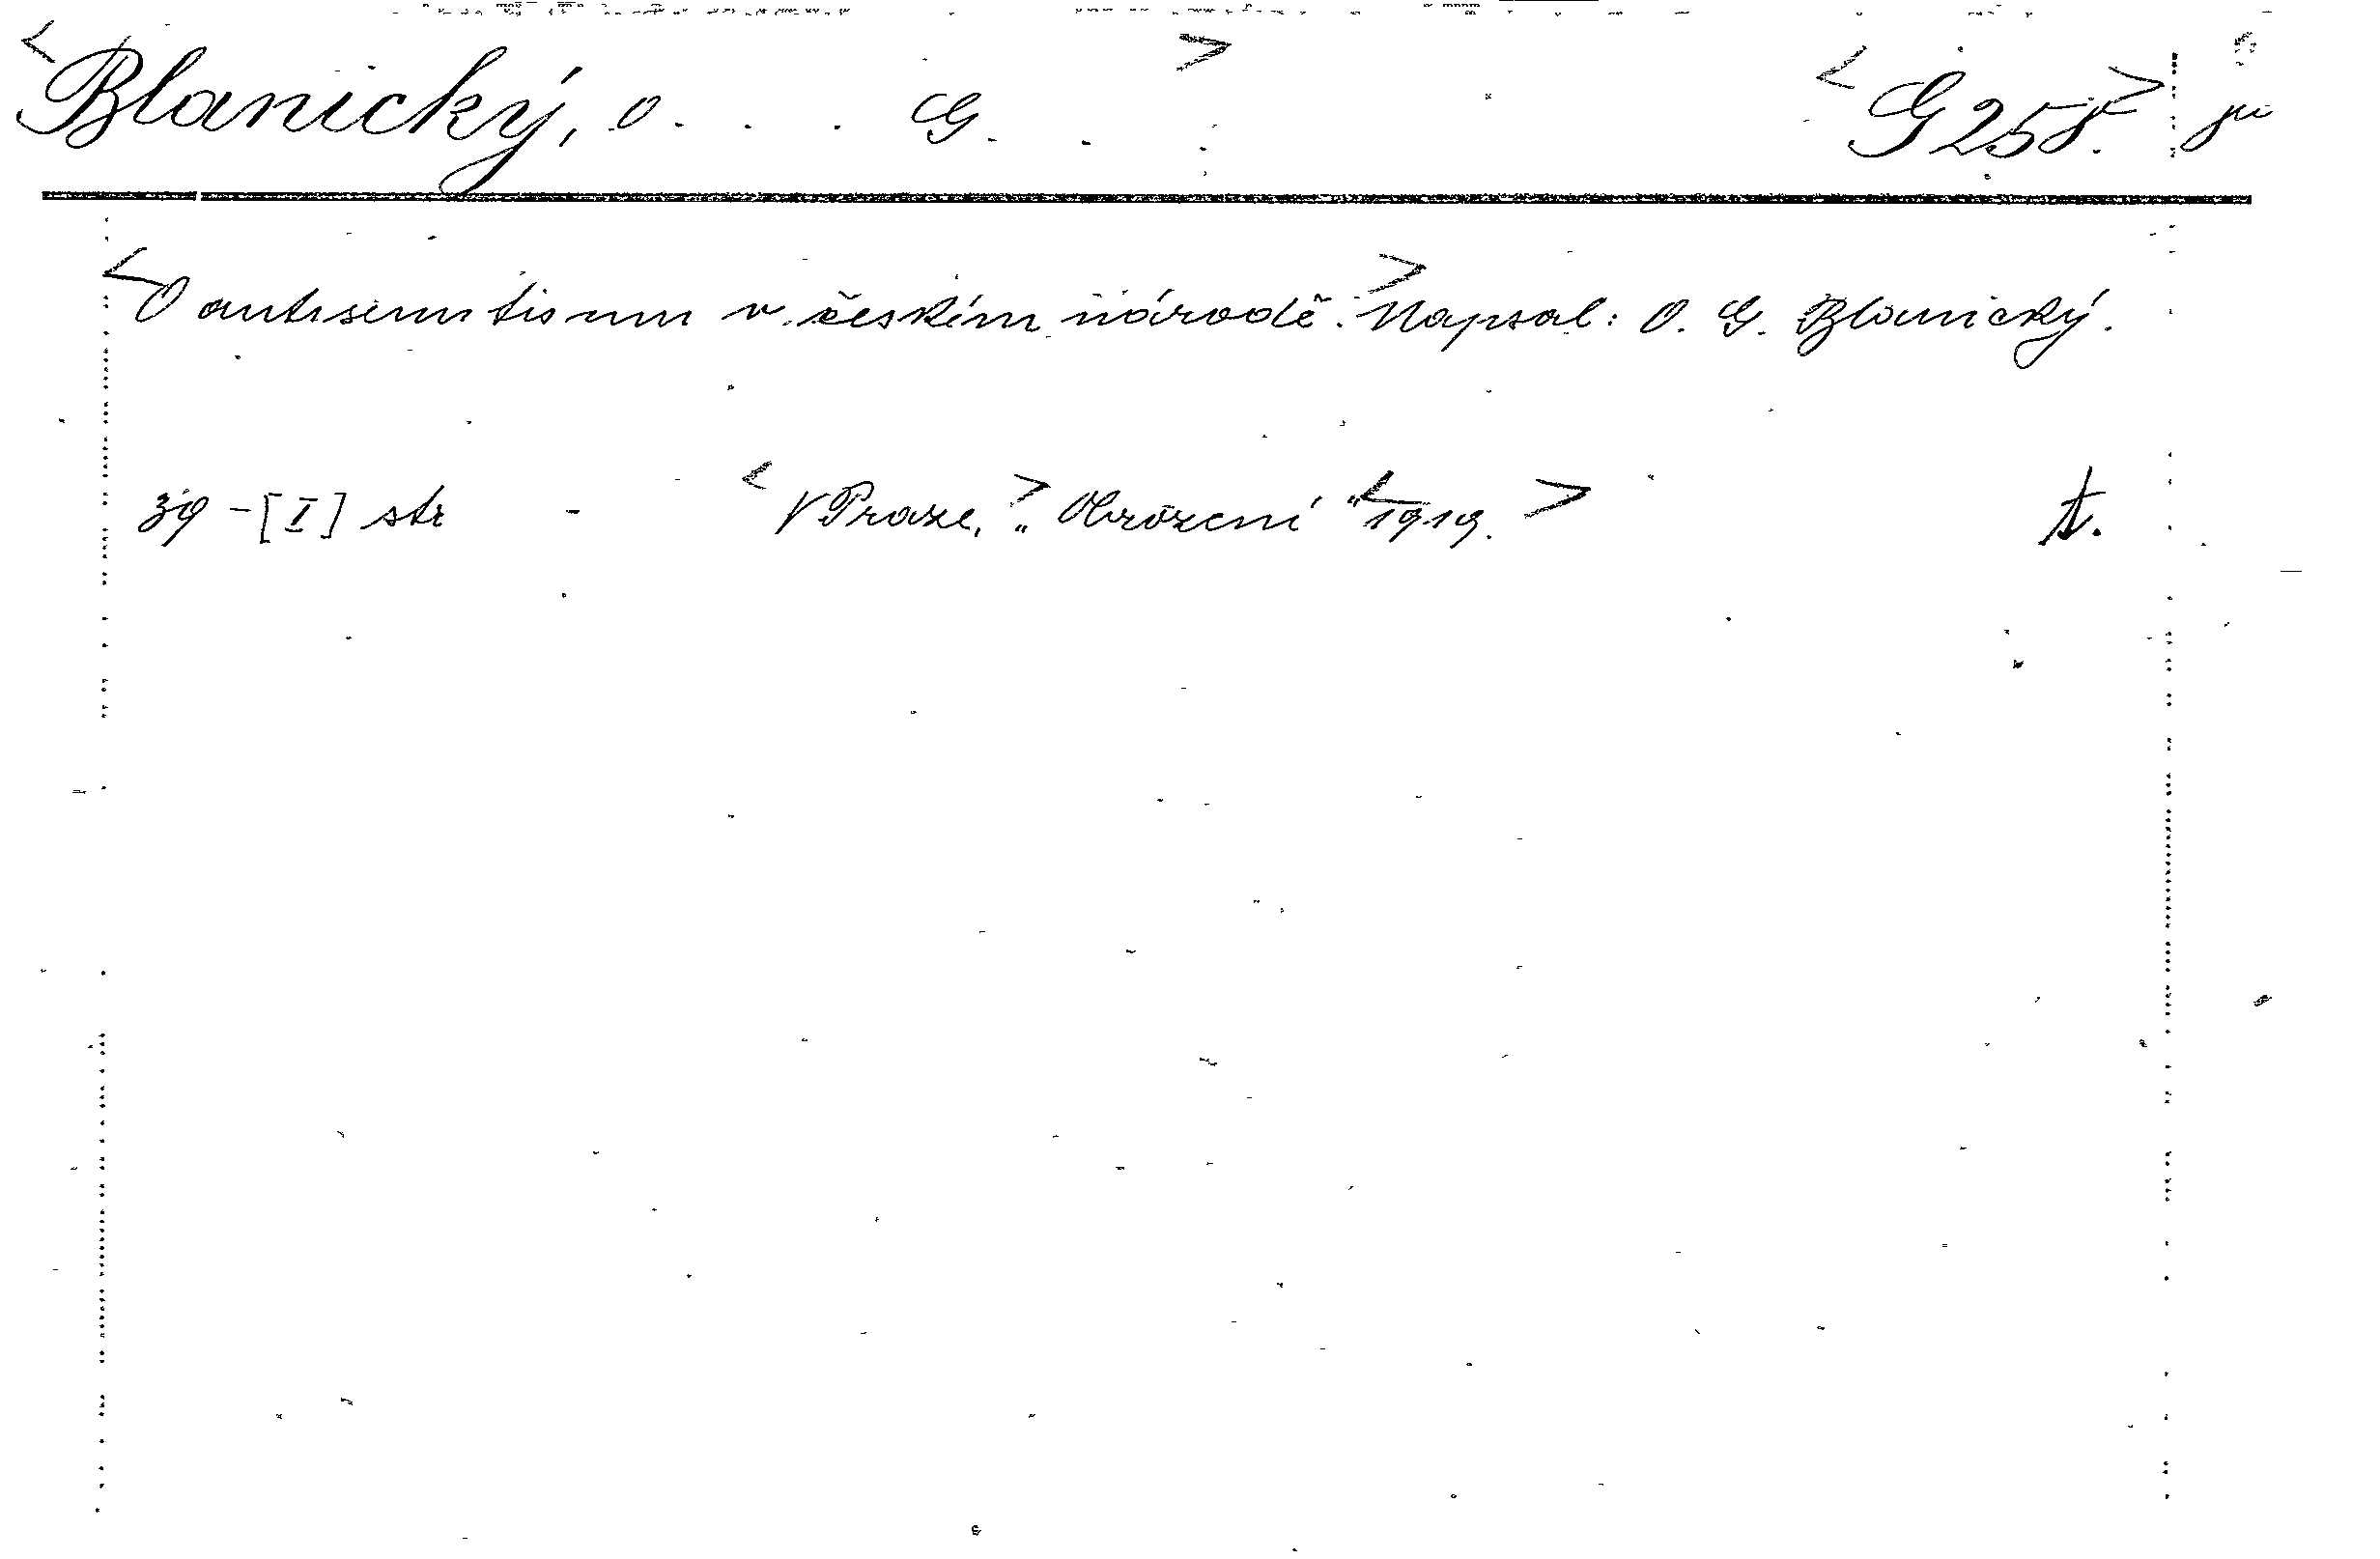 <Blanický, O. . . G. . > <G 258.>
<O antisemitismu v českém národě.> Napsal: O. G. Blanický.
39 - [I] str - <V Praze,> „Obrození“ <1919.> t.